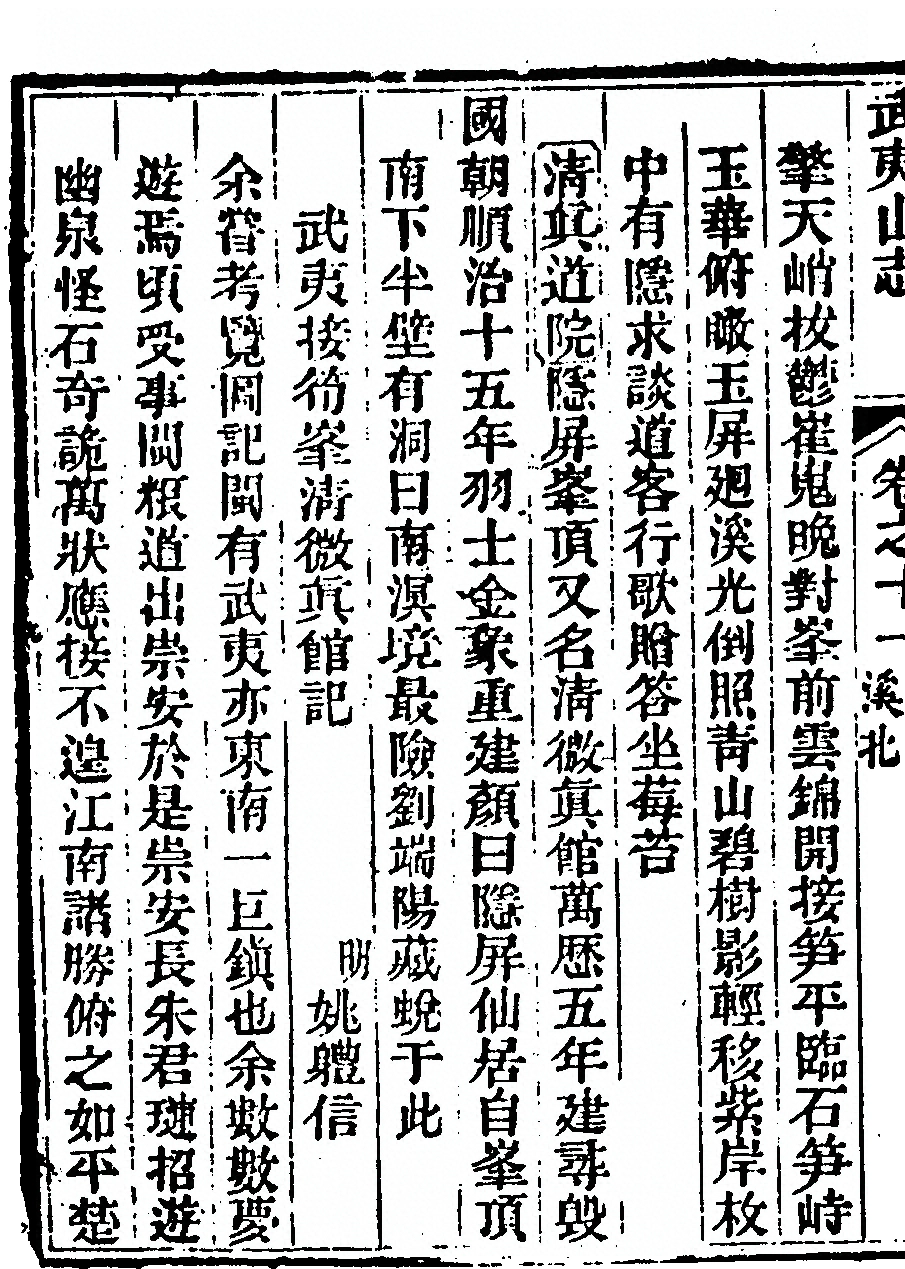 武夷山志
卷之十一 溪北
擎天峭拔鬱崔嵬晚對峯前雲錦開接笋平臨石笋峙
玉華俯瞰玉屏廻溪光倒照青山碧樹影輕移紫岸枚
中有隱求談道客行歌贈答坐莓苔
清眞道院隱屏峯頂又名清微眞館萬歷五年建尋毀
國朝順治十五年羽士金象重建顏曰隱屏仙居自峯頂
南下半壁有洞曰南溟境最險劉端陽藏蛻于此
武夷接笋峯清微眞館記
明 姚體信
余嘗考覽圖記閩有武夷亦東南一巨鎭也余數數夢
遊焉頃受事閩粮道出崇安於是崇安長朱君璉招遊
幽泉怪石奇詭萬狀應接不遑江南諸勝俯之如平楚